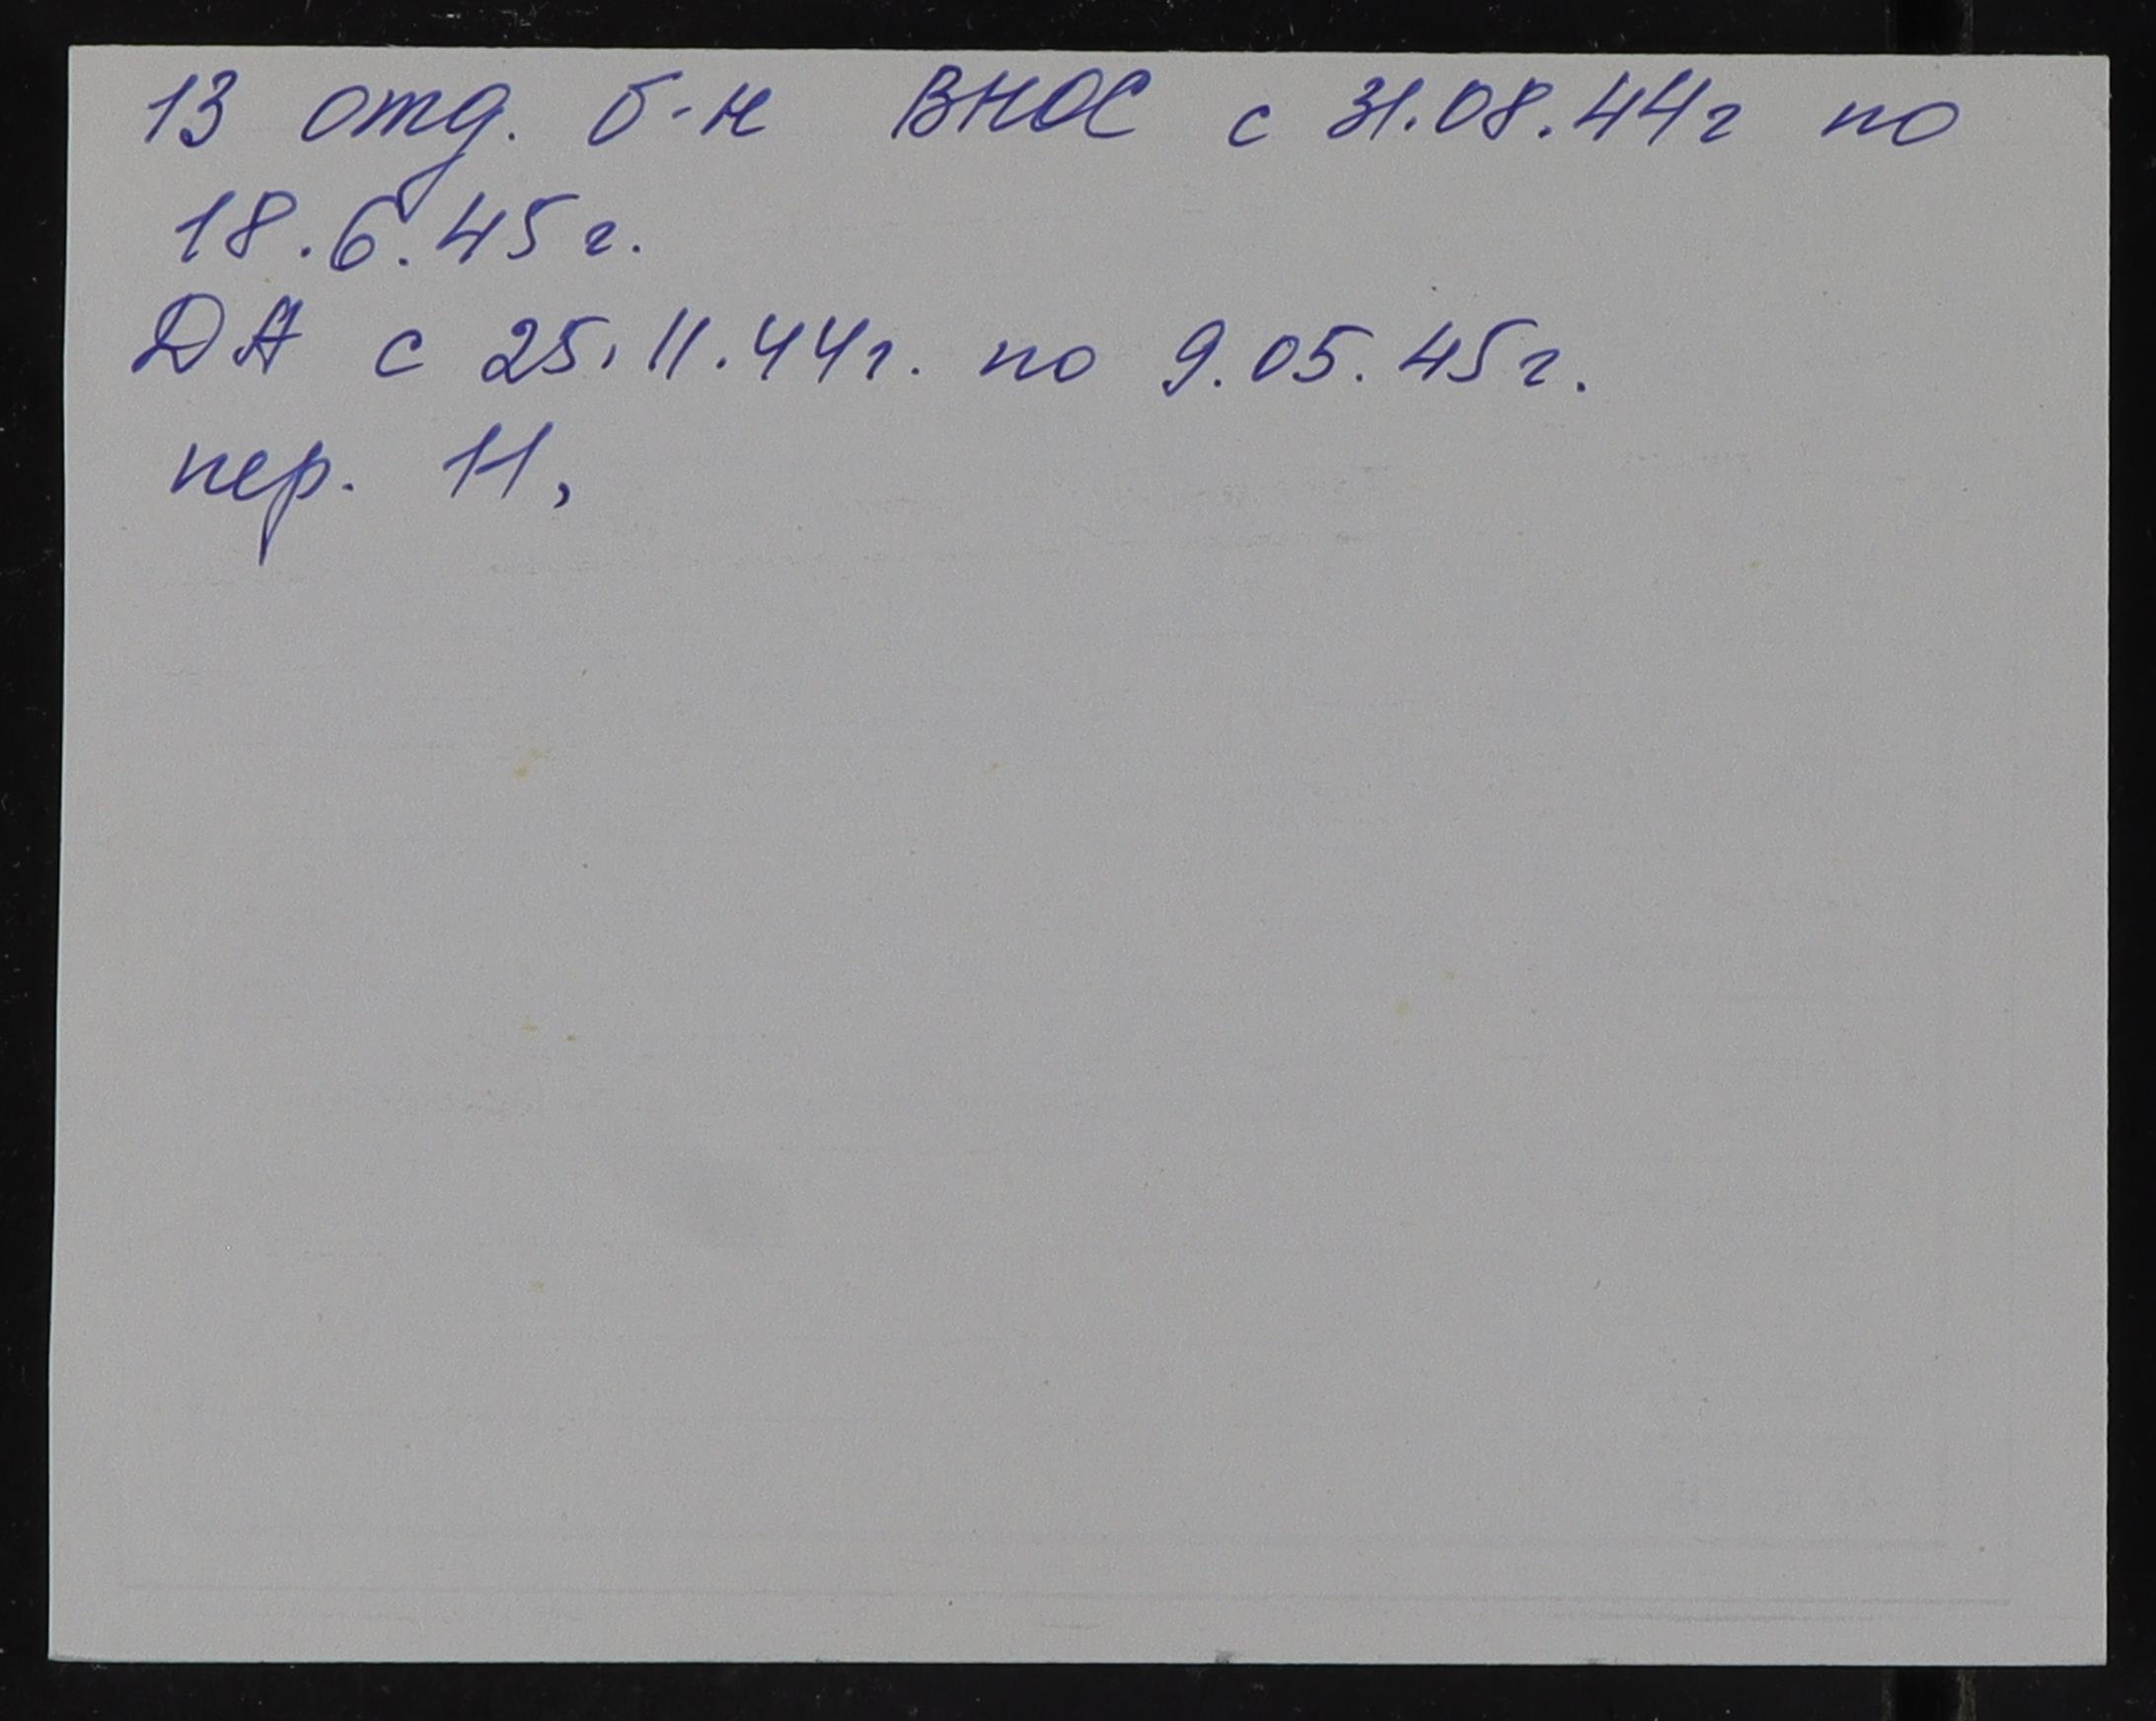 13 отд. б-н ВНОС с 31.08.44г по
18.6.45г.
ДА с 25.11.44г. по 9.05.45г.
пер. 11,